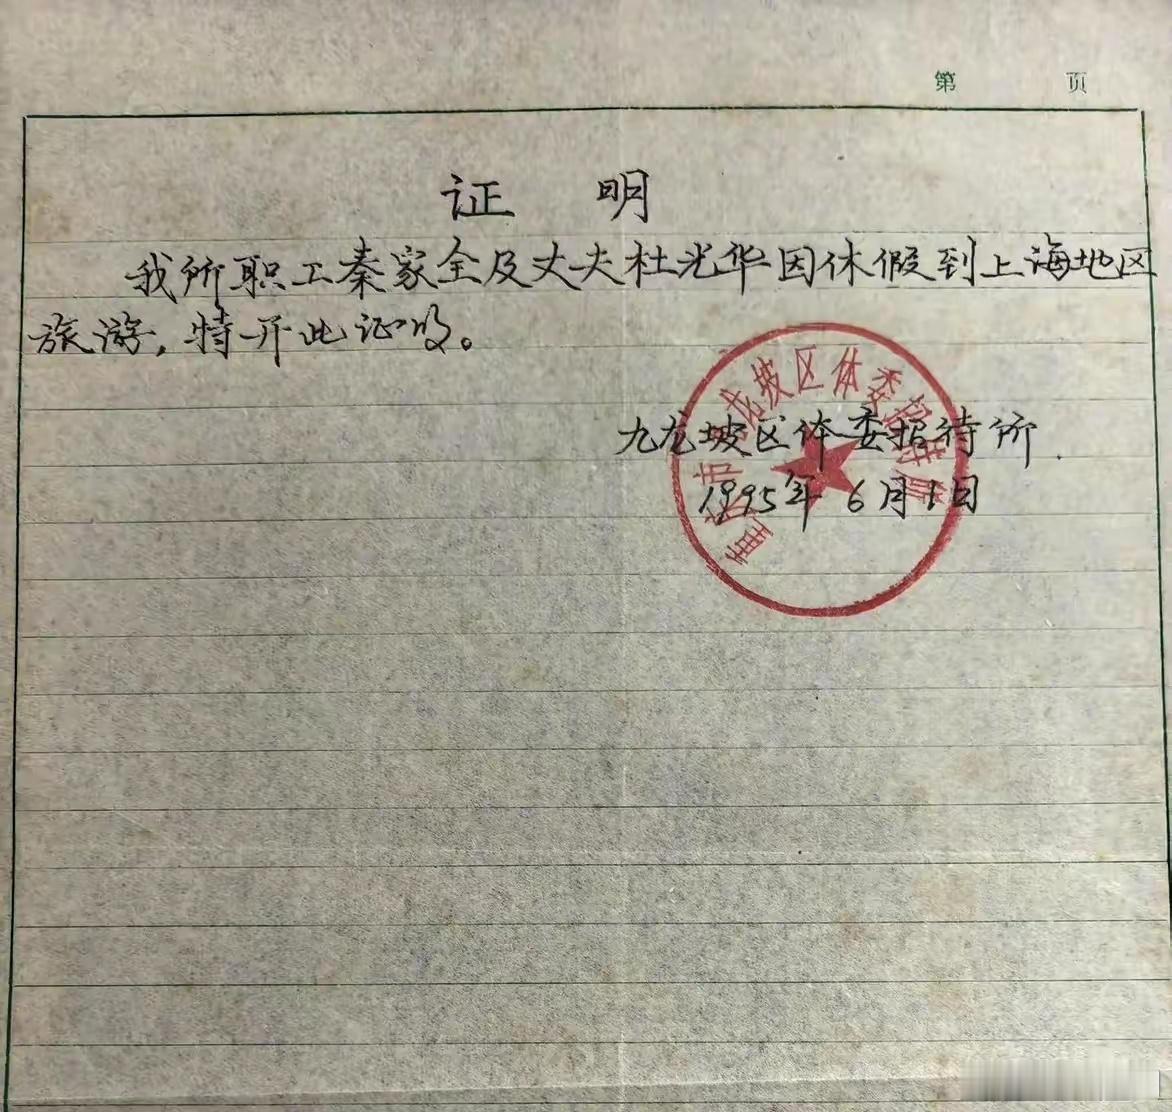 第 页
证 明
我所职工秦家全及丈夫杜光华因休假到上海地区
旅游,特开此证明。
九龙坡区体委招待所
1995年6月1日
重庆市九龙坡区体委招待所